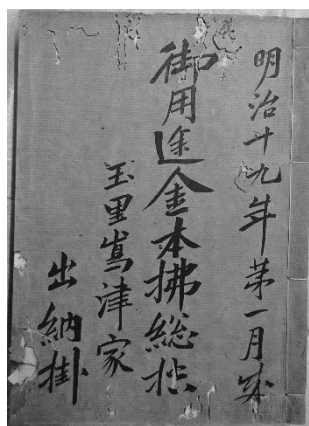 明治十九年第一月
御用途金本拂総
玉里嶌津家
出納掛